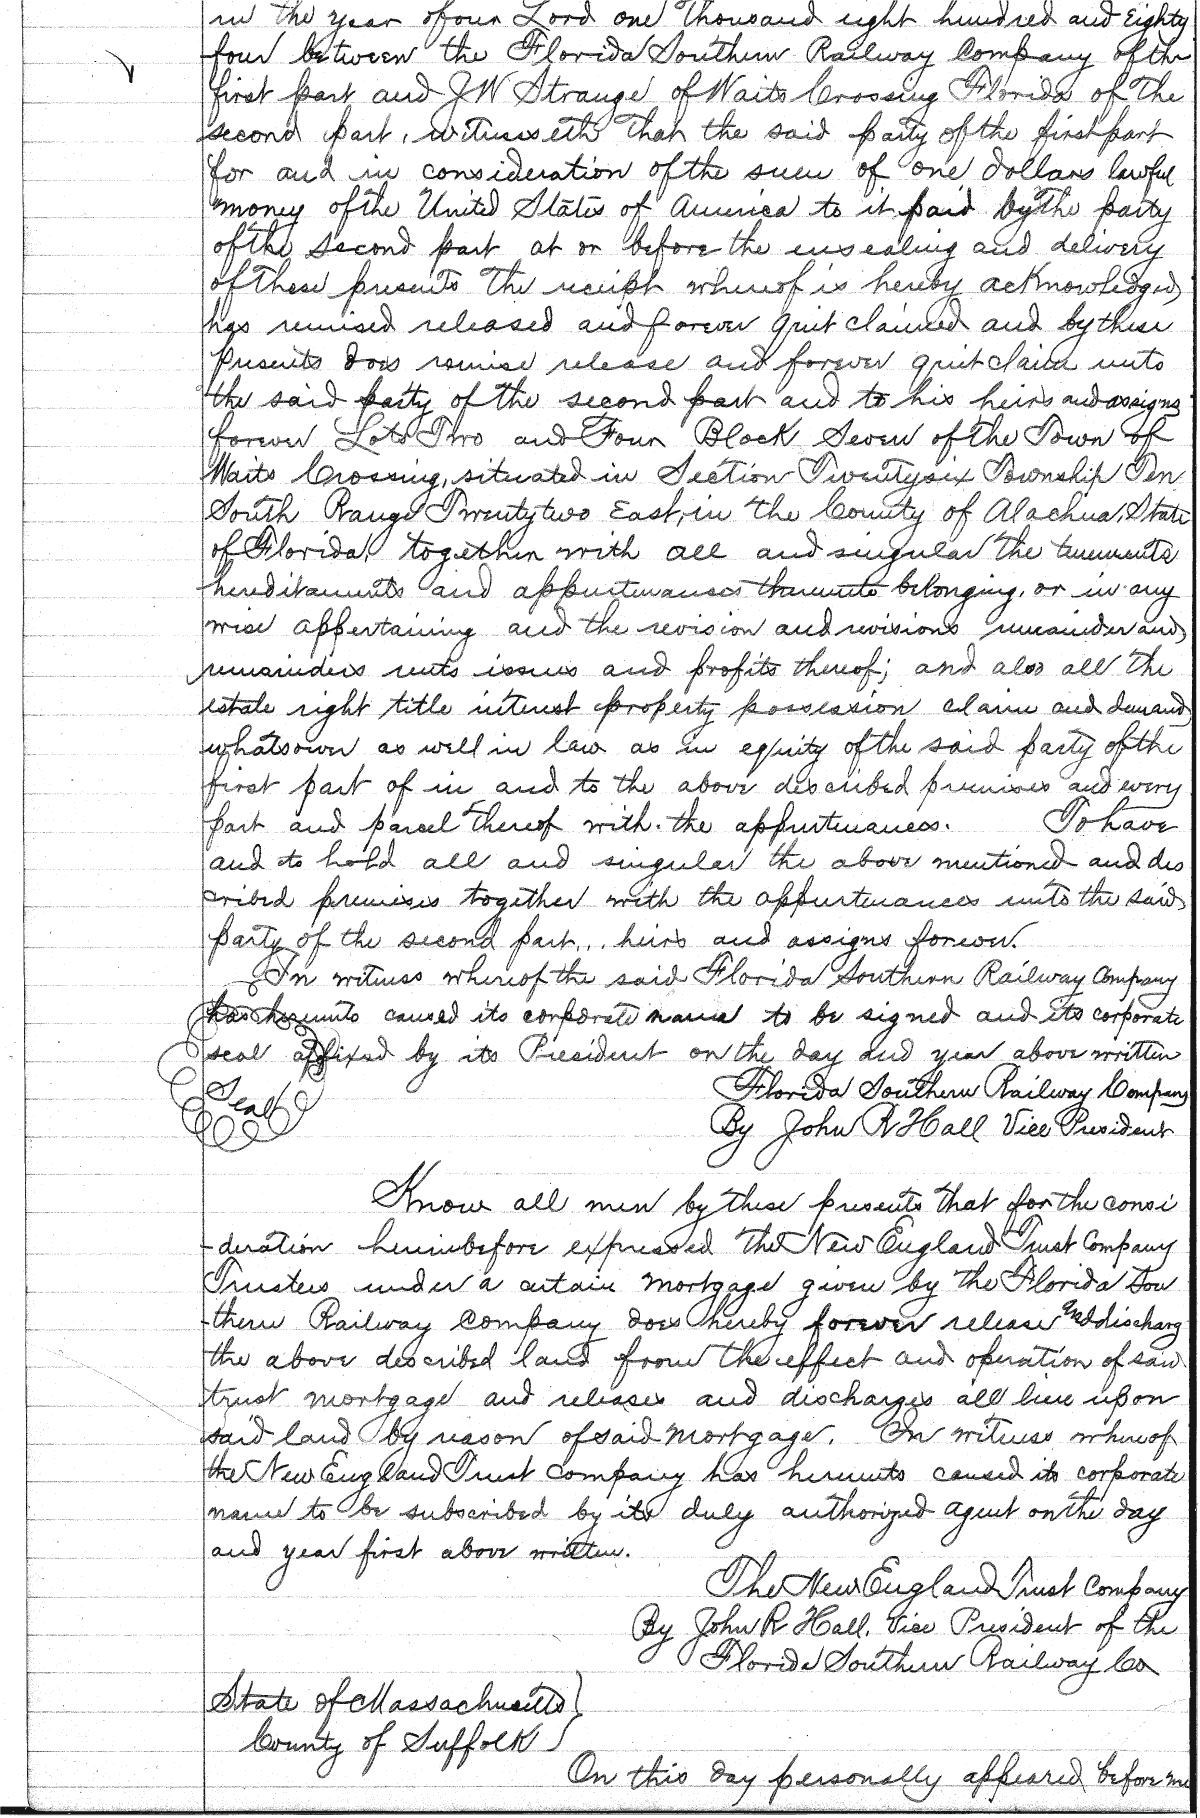 in the year of our Lord one Thousand eight hundred and Eighty
four between the Florida Southern Railway Company of the
first part and J W Strange of Waits Crossing Florida of the
second part, witnesseth That the said party of the first part
for and in consideration of the sum of one dollars lawful
money of the United States of America to it paid by the party
of the second part at or before the ensealing and delivery
of these presents the receipt whereof is hereby acknowledged
has remised released and forever quit claimed and by these
presents does remise release and forever quit claim unto
the said party of the second part and to his heirs and assigns
forever Lots Two and Four Block Seven of the Town of
Waits Crossing, situated in Section Twentysix Township Ten
South Range Twentytwo East, in the County of Alachua, State
of Florida, together with all and singular the tenements
hereditaments and appurtenances thereunto belonging, or in any
wise appertaining and the revision and revisions remainder and
remainders rents issues and profits thereof; and also all the
estate right title interest property possession claim and demand
whatsoever as well in law as in equity of the said party of the
first part of in and to the above described premises and every
part and parcel thereof with the appurtenances. To have
and to hold all and singular the above mentioned and des
cribed premises together with the appurtenances unto the said
party of the second part... heirs and assigns forever.
In witness whereof the said Florida Southern Railway Company
has hereunto caused its corporate name to be signed and its corporate
seal affixed by its President on the day and year above written
Florida Southern Railway Company
Seal
By John R Hall Vice President
Know all men by these presents that for the consi
-deration hereinbefore expressed the New England Trust Company
Trustees under a certain mortgage given by the Florida Sou
-thern Railway Company does hereby forever release and discharg
the above described land from the effect and operation of said
trust mortgage and releases and discharges all lien upon
said land by reason of said mortgage. In witness whereof
the New England Trust Company has hereunto caused its corporate
name to be subscribed by its duly authorized agent on the day
and year first above written.
The New England Trust Company
By John R Hall, Vice President of the
Florida Southern Railway Co
State of Massachusetts }
County of Suffolk }
On this day personally appeared before me